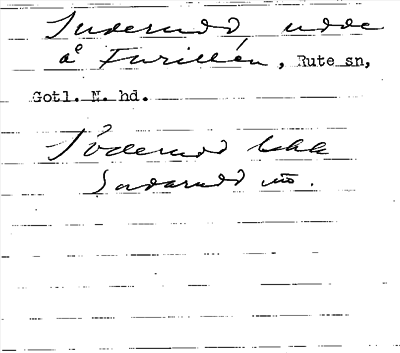 Suderudd udde
å Furillen, Rute sn,
Gotl. N. hd.
Söderudd
Sudarudd